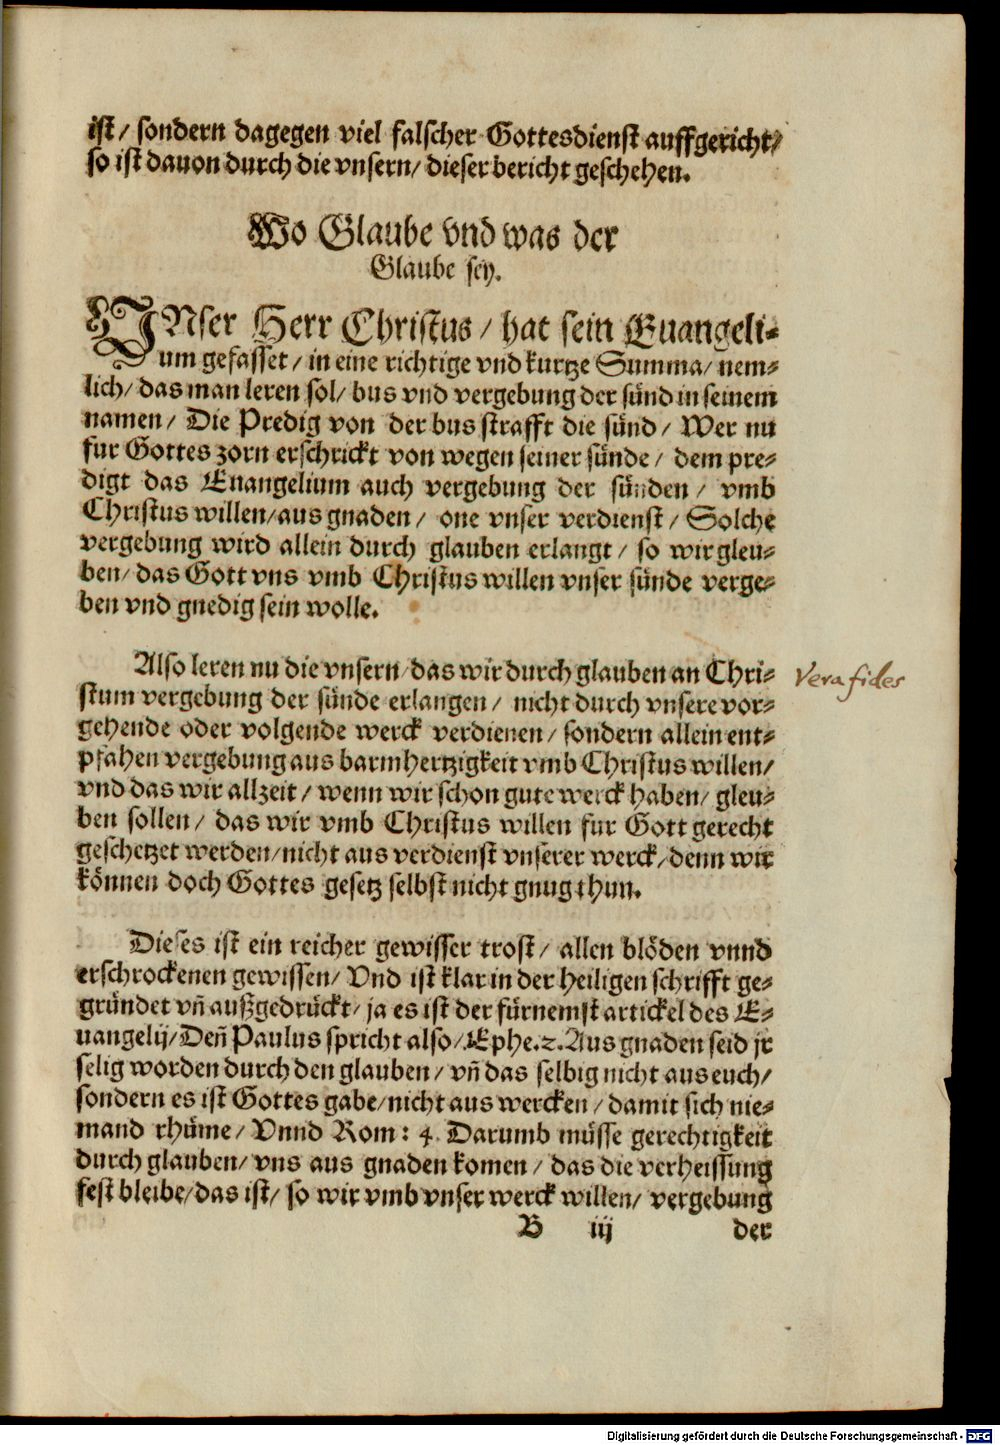 ist/ sondern dagegen viel falscher Gottesdienst auffgericht/
so ist dauon durch die vnsern/ dieser bericht geschehen.
Wo Glaube vnd was der
Glaube sey.
VNser Herr Christus/ hat sein Euangeli-
um gefasset/ in eine richtige vnd kurtze Summa/ nem-
lich/ das man leren sol/ bus vnd vergebung der sünd in seinem
namen/ Die Predig von der bus strafft die sünd/ Wer nu
fur Gottes zorn erschrickt von wegen seiner sünde/ dem pre-
digt das Euangelium auch vergebung der sünden/ vmb
Christus willen/ aus gnaden/ one vnser verdienst/ Solche
vergebung wird allein durch glauben erlangt/ so wir gleu-
ben/ das Gott vns vmb Christus willen vnser sünde verge-
ben vnd gnedig sein wolle.
Also leren nu die vnsern/ das wir durch glauben an Chri-
stum vergebung der sünde erlangen/ nicht durch vnsere vor-
gehende oder volgende werck verdienen/ sondern allein ent-
pfahen vergebung aus barmhertzigkeit vmb Christus willen/
vnd das wir allzeit/ wenn wir schon gute werck haben/ gleu-
ben sollen/ das wir vmb Christus willen fur Gott gerecht
geschetzet werden/ nicht aus verdienst vnserer werck/ denn wir
können doch Gottes gesetz selbst nicht gnug thun.
Vera fides
Dieses ist ein reicher gewisser trost/ allen blöden vnnd
erschrockenen gewissen/ Vnd ist klar in der heiligen schrifft ge-
gründet vn̄ außgedrückt/ ja es ist der fürnemst artickel des E-
uangelij/ Den̄ Paulus spricht also/ Ephe. 2. Aus gnaden seid jr
selig worden durch den glauben/ vn̄ das selbig nicht aus euch/
sondern es ist Gottes gabe/ nicht aus wercken/ damit sich nie-
mand rhüme/ Vnnd Rom: 4. Darumb müsse gerechtigkeit
durch glauben/ vns aus gnaden komen/ das die verheissung
fest bleibe/ das ist/ so wir vmb vnser werck willen/ vergebung
B iij der
Digitalisierung gefördert durch die Deutsche Forschungsgemeinschaft - DFG